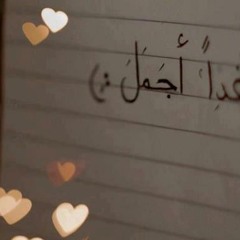 غداً أَجمَل :)